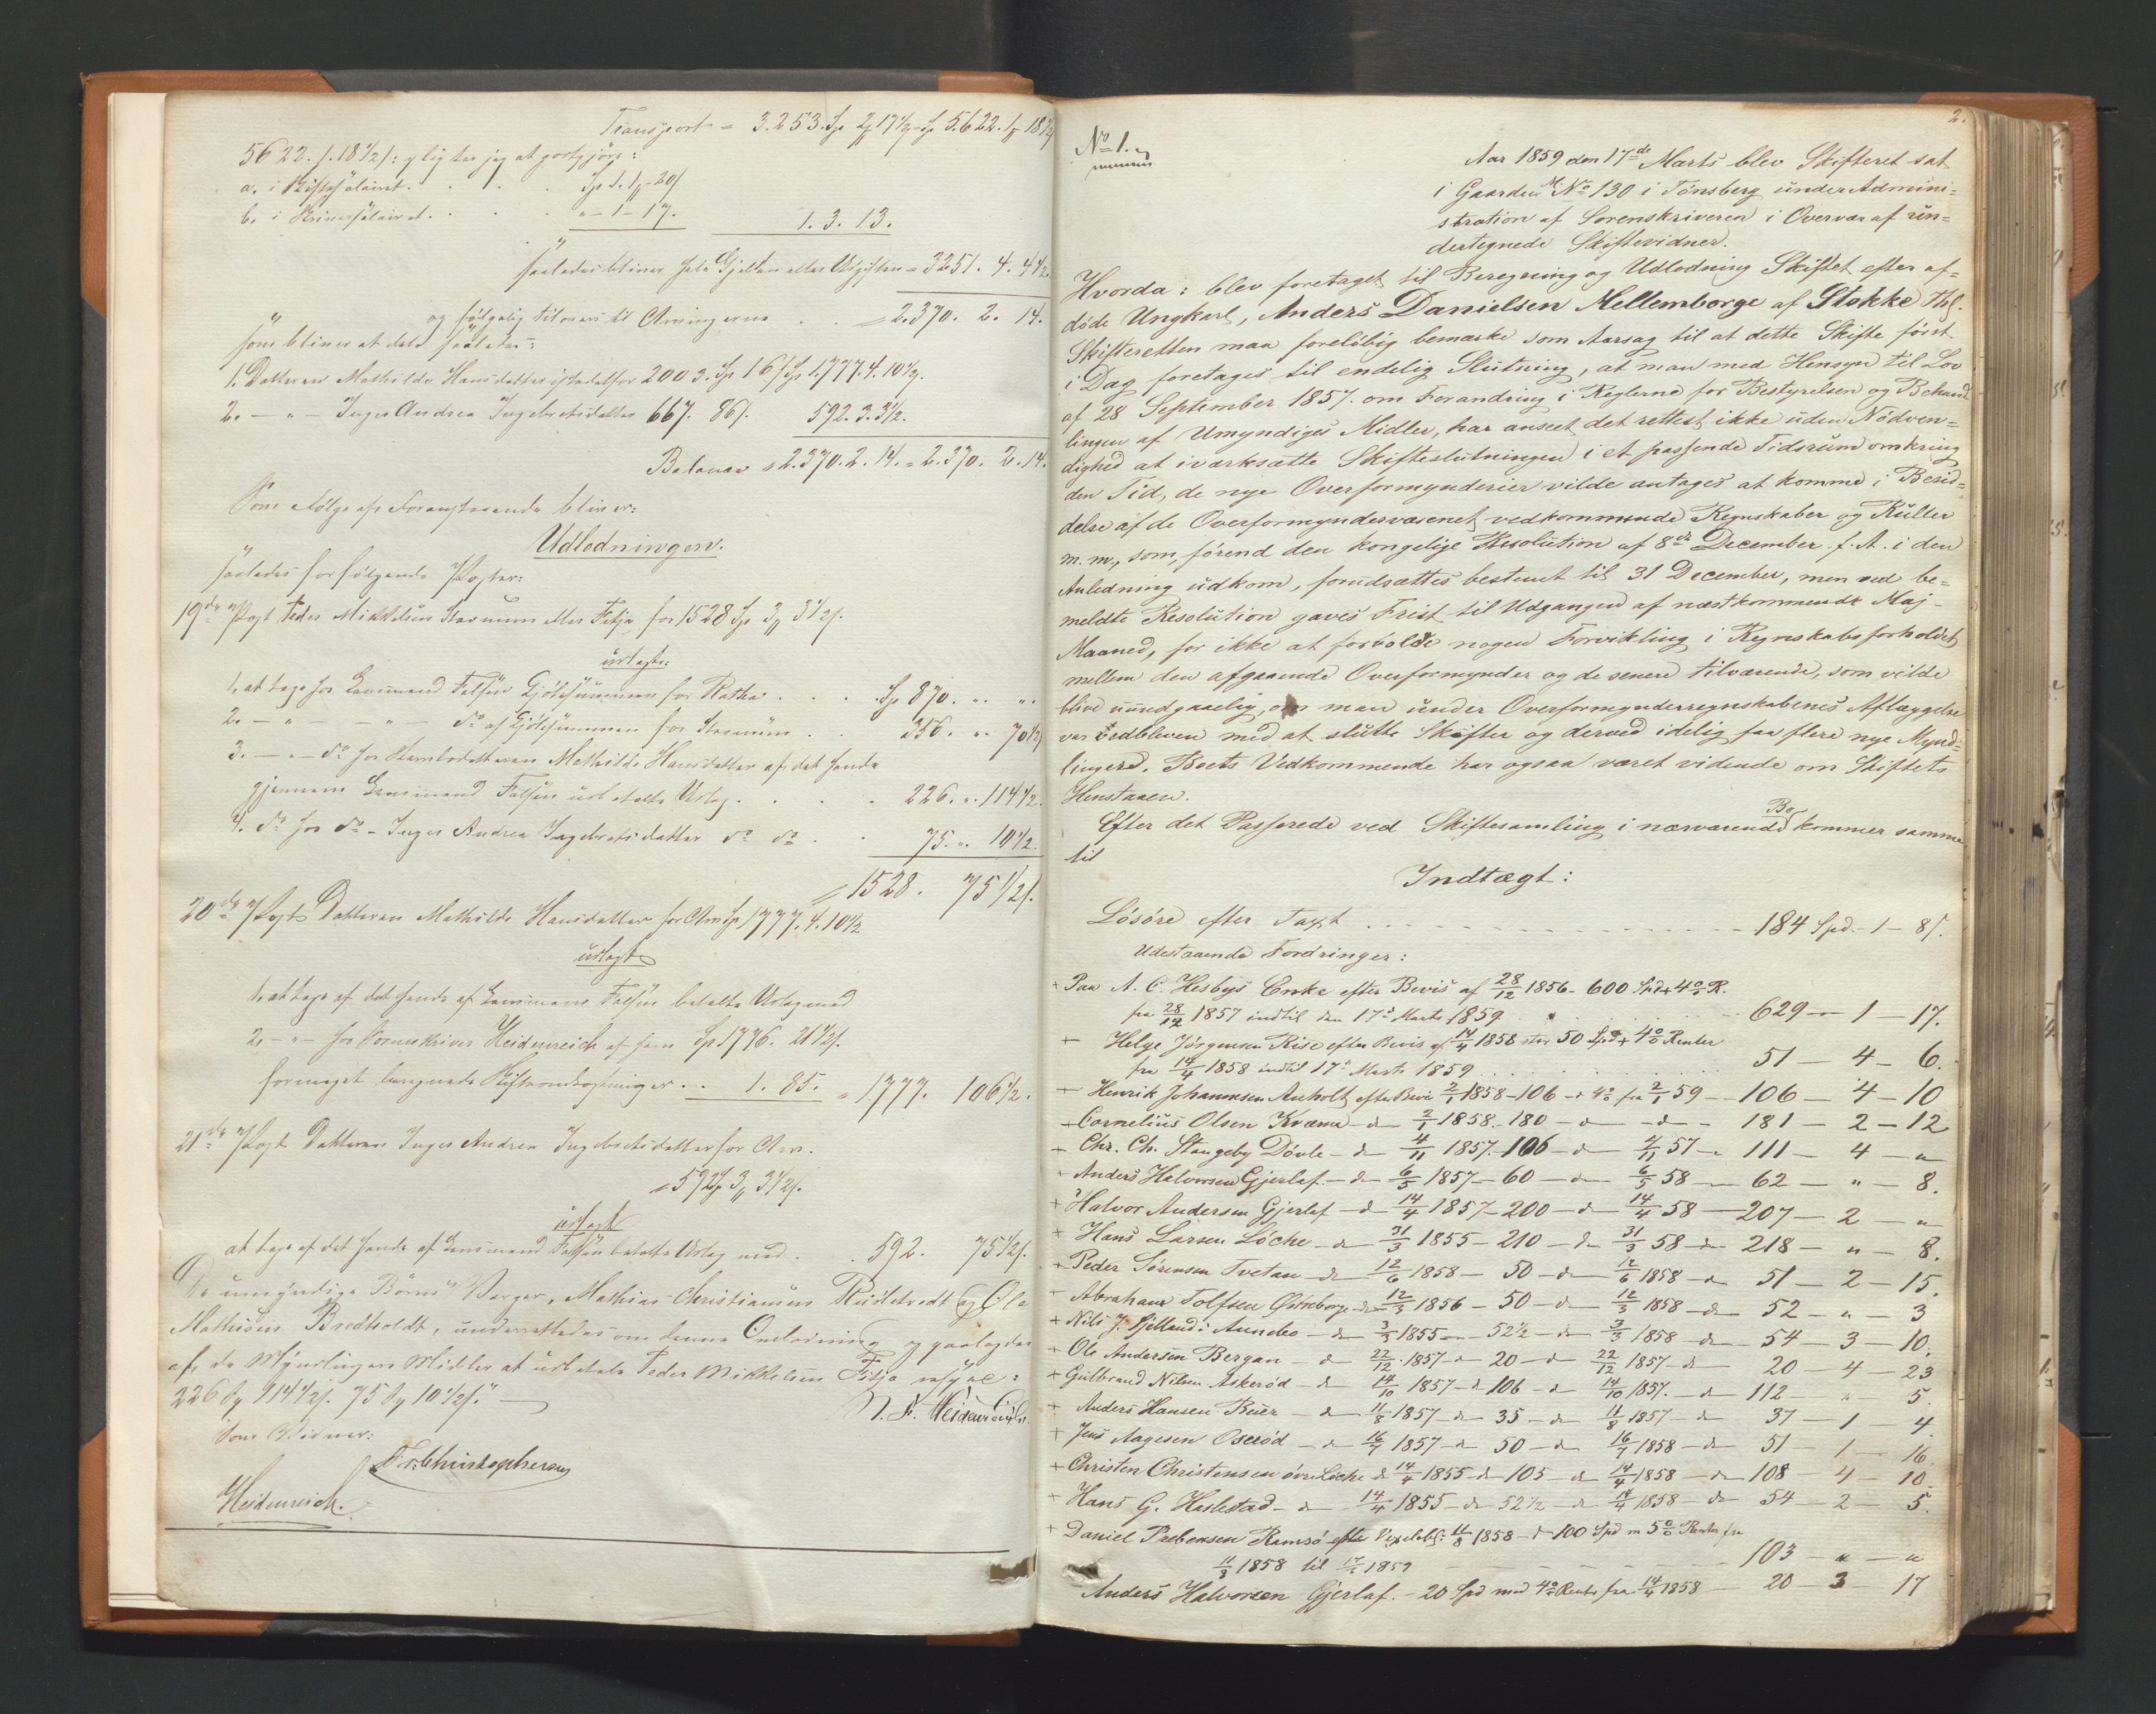 Transport = 3.253. Sp 2 17½ = Sp 5.622. 1 18½
5622. 1. 18½ : pligter jeg at godtgjøre:
a. i Skiftesalairet . . . Sp 1. 1 - 20
b. i Skriversalairet . . . " - 1 - 17. 1. 3. 13.
saaledes bliver hele Gjelden eller Udgiften = 3251. 4. 4½
og følgelig tilovers til Arvingerne . . = 2.370. 2. 14.
som bliver at dele saaledes:
1. Datteren Mathilde Hansdatter istedetfor 2003. Sp 16 Sp 1.777. 4. 10½.
2. — " — Inger Andrea Ingebretsdatter 667. 86. 592. 3. 3½.
Balance = 2.370. 2. 14. = 2.370. 2. 14.
Som Følge af Foranstaaende bliver:
Udlodningen.
saaledes for følgende Poster:
19de Post Peder Mikkelsen Stasrum eller Filja for 1528 Sp 3 3½.
udlagt:
1. at tage hos Lensmand Falsen Kjøbesummen for . . . Sp 870. " "
2. — " — — " — do af Kjøbesummen for . . 356. " 70½
3. — " — do hos Datteren Mathilde Hansdatter af det hende
gjennem Lensmand Falsen udbetalte Udlæg . . . 226. " 114½.
4. do hos do - Inger Andrea Ingebretsdatter do do . . 75. " 10½.
= 1528. 75½.
20de Post Datteren Mathilde Hansdatter for Arv Sp 1777. 4. 10½
udlagt
1. at tage af det hende af Lensmand Falsen betalte Udlæg med
2. — " — hos Sorenskriver Heidenreich af ham Sp 1776. 21½.
formeget beregnede Skifteomkostninger . . 1. 85. = 1777. 106½.
21de Post Datteren Inger Andrea Ingebretsdatter for Arv.
= 592 Sp 3 3½.
udlagt
at tage af det hende af Lensmand Falsen betalte Udlæg med . . 592. 75½.
De umyndige Børns Værger, Mathias Christiansen og Ole
Mathisen Bredholdt, underrettedes om denne Omlodning og paalagdes
af de Myndlingers Midler at udbetale Peder Mikkelsen Filja
226 Sp 114½. 75 Sp 10½." —
Heidenreich.
Som Vidner:
Fr. Christophersen
Heidenreich.
2.
No 1.
Aar 1859 den 17de Marts blev Skifteret sat
i Gaarden M. No 130 i Tønsberg under Admini=
stration af Sorenskriveren i Overvær af un=
dertegnede Skiftevidner.
Hvorda: blev foretaget til Beregning og Udlodning Skiftet efter af=
døde Ungkarl, Anders Danielsen Mellemborge af Stokke Thgl.
Skifteretten maa foreløbig bemærke som Aarsag til at dette Skifte først
i Dag foretages til endelig Slutning, at man med Hensyn til Lov
af 28 September 1857. om Forandring i Reglerne for Bestyrelsen og Behand
lingen af Umyndiges Midler, har anseet det rettest ikke uden Nødven=
dighed at iværksætte Skifteslutningen i et passende Tidsrum omkring
den Tid, de nye Overformynderier vilde antages at komme i Besid=
delse af de Overformyndervæsenet vedkommende Regnskaber og Ruller
m. m., som, førend den kongelige Resolution af 8de December f. A. i den
Anledning udkom, forudsættes bestemt til 31 December, men ved be=
meldte Resolution gaves Frist til Udgangen af næstkommende Maj-
Maaned, for ikke at forvolde nogen Forvikling i Regnskabsforholdet
mellem den afgaaende Overformynder og de senere tilværende, som vilde
blive uundgaaelig, om man under Overformynderregnskabenes Aflæggelse
var vedbleven med at slutte Skifter og derved idelig faa flere nye Mynd=
linger. Boets Vedkommende har ogsaa været vidende om Skiftets
Henstaaen.
Efter det Passerede ved Skiftesamling i nærværende Bo kommer samme
til
Indtægt:
Løsøre efter Taxt . . . . . . . . 184 Spd. - 1 - 8.
Udestaaende Fordringer:
+ Paa A. C. Hesbys Enke efter Bevis af 28/12 1856 - 600 Spd + 4% R.
fra 28/12 1857 indtil den 17de Marts 1859 . . . . . 629 — 1 — 17.
+ Helge Jørgensen Rise efter Bevis af 14/4 1858 stor 50 Spd + 4% Renter
fra 14/4 1858 indtil 17de Marts 1859 . . . . . 51 — 4 — 6.
+ Henrik Johannesen Aicholt efter Bevis 2/1 1858 - 106 - + 4% fra 2/1 59 — 106 — 4 — 10
+ Cornelius Olsen Kværne — d — 2/1 1858. 180 — d — d — 181 — 2 — 12
+ Chr. Ch. Stangeby Døvle — d — 4/11 1857. 106 — d — 4/11 57 — 111 — 4 — "
+ Anders Halvorsen Gjerlaf — d — 6/5 1857 — 60 — d — 6/5 58 — 62 — " — 8.
+ Halvor Andersen Gjerlaf — d — 14/4 1857 — 200 — d — 14/4 58 — 207 — 2 — "
+ Hans Larsen Løche — d — 31/3 1855 — 210 — d — 31/3 58 — d — 218 — " — 8.
+ Peder Sørensen Tvetan — d — 12/6 1858 — 50 — d — 12/6 1858 — d — 51 — 2 — 15.
+ Abraham Tolfsen Østreborge — d — 12/3 1856 — 50 — d — 12/3 1858 — d — 52 — " — 3
+ Nils J. Sjelland i Aunebo — d — 3/3 1855 — 52½ — d — 3/3 1858 — d — 54 — 3 — 10.
+ Ole Andersen Bergan — d — 22/12 1857 — d — 20 — d — 22/12 1857 — d — 20 4 — 23
+ Gulbrand Nilsen Askerød — d — 14/10 1857 — d 106 — d — 14/10 1857. — d — 112 — " 5.
+ Anders Hansen Buer — d — 11/8 1857 — d — 35 — d — 11/8 1857 — d — 37 — 1 4
+ Jens Aagesen Oserød — d — 16/7 1857 — d — 50 — d — 16/7 1858 — d — 51 1 — 16.
+ Christen Christensen øvre Løche d 14/4 1855 — d — 105 — d — 14/4 1858 — d — 108 — 4 — 10.
+ Hans G. Haslestad — d — 14/4 1855 — d — 52½ — d — 14/4 1858 — d — 54 — 2 — 5.
+ Daniel Prebensen Ramsø efter Vexelobl: 11/8 1858 — d 100 Spd m 5% Renter fra
11/8 1858 til 17/3 1859 — — — — — 103 — " — "
Anders Halvorsen Gjerlaf. - 20 Spd med 4% Rente fra 14/4 1858 20 — 3 17